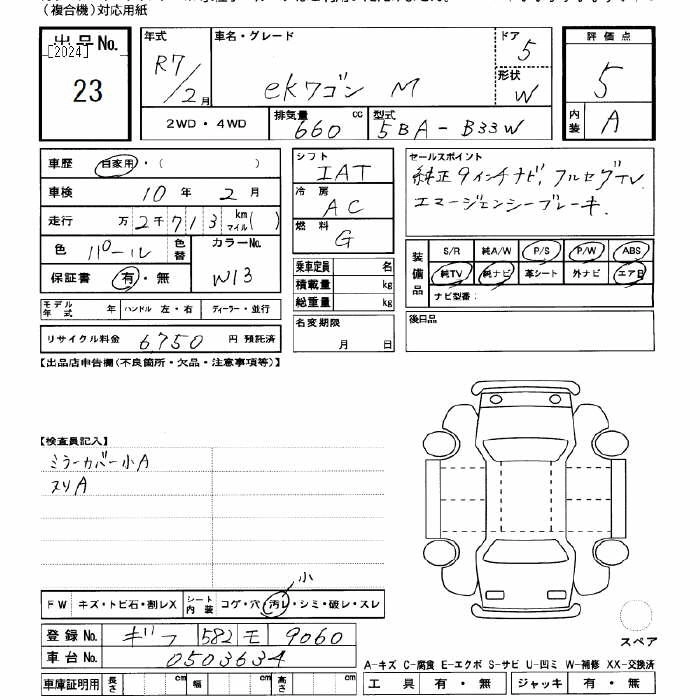 （複合機）対応用紙
出品No. [2024] 23
年式 R7/2月
車名・グレード ekワゴン M
ドア 5
形状 W
評価点 5
内装 A
2WD・4WD
排気量 660 cc
型式 5BA-B33W
車歴 自家用・（ ）
車検 10年 2月
走行 万2千713 km マイル( )
色 パール 色替 カラーNo. W13
保証書 有・無
モデル年式 年 ハンドル 左・右 ディーラー・並行
リサイクル料金 6750 円 預託済
シフト IAT
冷房 AC
燃料 G
乗車定員 名
積載量 kg
総重量 kg
名変期限 月 日
セールスポイント
純正9インチナビ, フルセグTV.
エマージェンシーブレーキ.
装備品 S/R 純A/W P/S P/W ABS
純TV 純ナビ 革シート 外ナビ エアB
ナビ型番：
後日品
【出品店申告欄(不良箇所・欠品・注意事項等)】
【検査員記入】
ミラーカバー小A
ヌリA
小
FW キズ・トビ石・割レX シート内装 コゲ・穴・汚レ・シミ・破レ・スレ
登録No. ギフ 582 モ 9060
車台No. 0503634
車庫証明用 長さ cm 幅 cm 高さ cm
スペア
A-キズ C-腐食 E-エクボ S-サビ U-凹ミ W-補修 XX-交換済
工具 有・無 ジャッキ 有・無